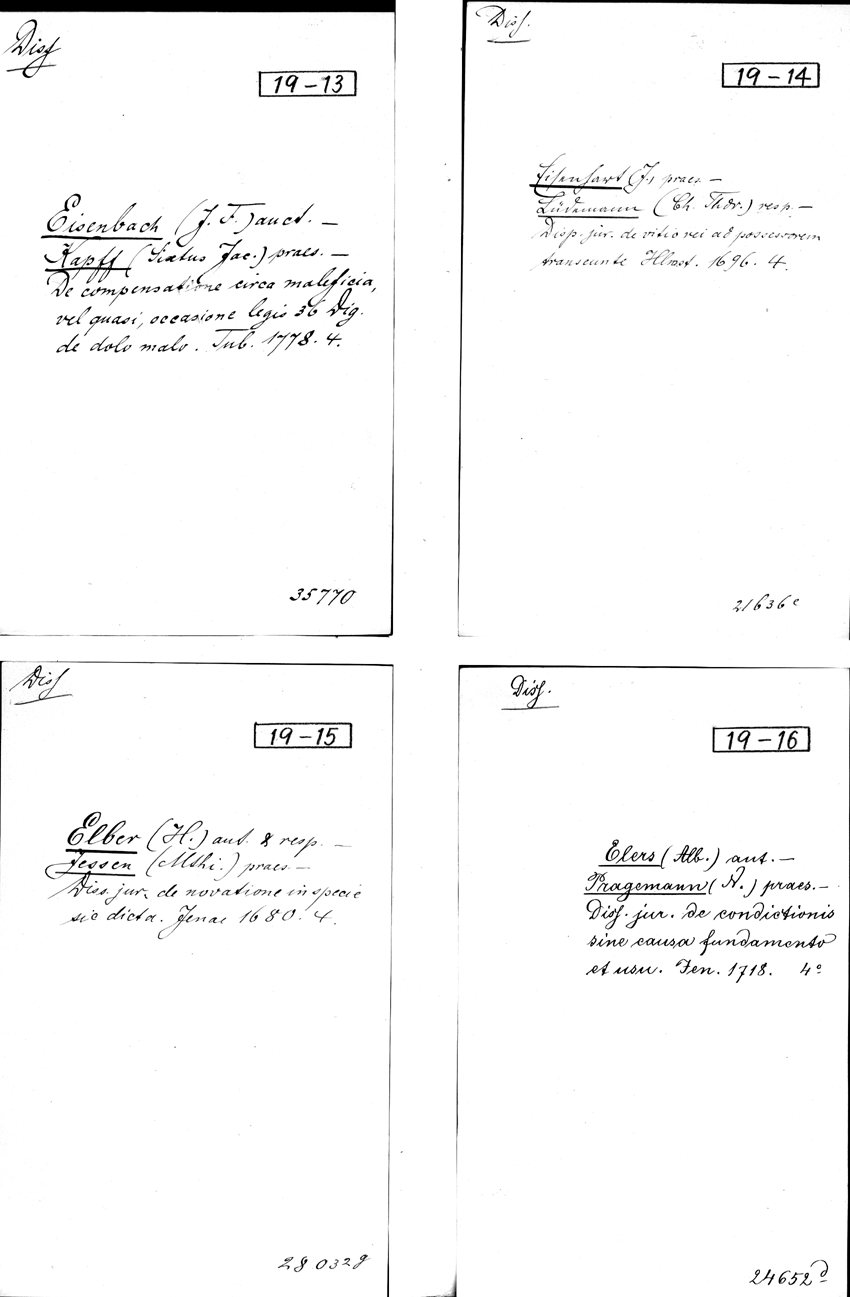 Diss
19-13
Eisenbach (J. F.) auct. —
Kapff (Sixtus Jac.) praes. —
De compensatione circa maleficia,
vel quasi, occasione legis 36 Dig.
de dolo malo. Tub. 1778. 4.
35770
Diss.
19-14
Eisenhart (J.) praes. —
Lüdemann (Ch. Thdr.) resp. —
Disp. jur. de vitio rei ad possessorem
transeunte Hlmst. 1696. 4.
21636 c
Diss
19-15
Elber (H.) aut. & resp. —
Jessen (Mthi.) praes. —
Diss. jur. de novatione in specie
sic dicta. Jenae 1680. 4.
28032 g
Diss.
19-16
Elers (Alb.) aut. —
Pragemann (N.) praes. —
Diss. jur. de condictionis
sine causa fundamento
et usu. Jen. 1718. 4°
24652 d